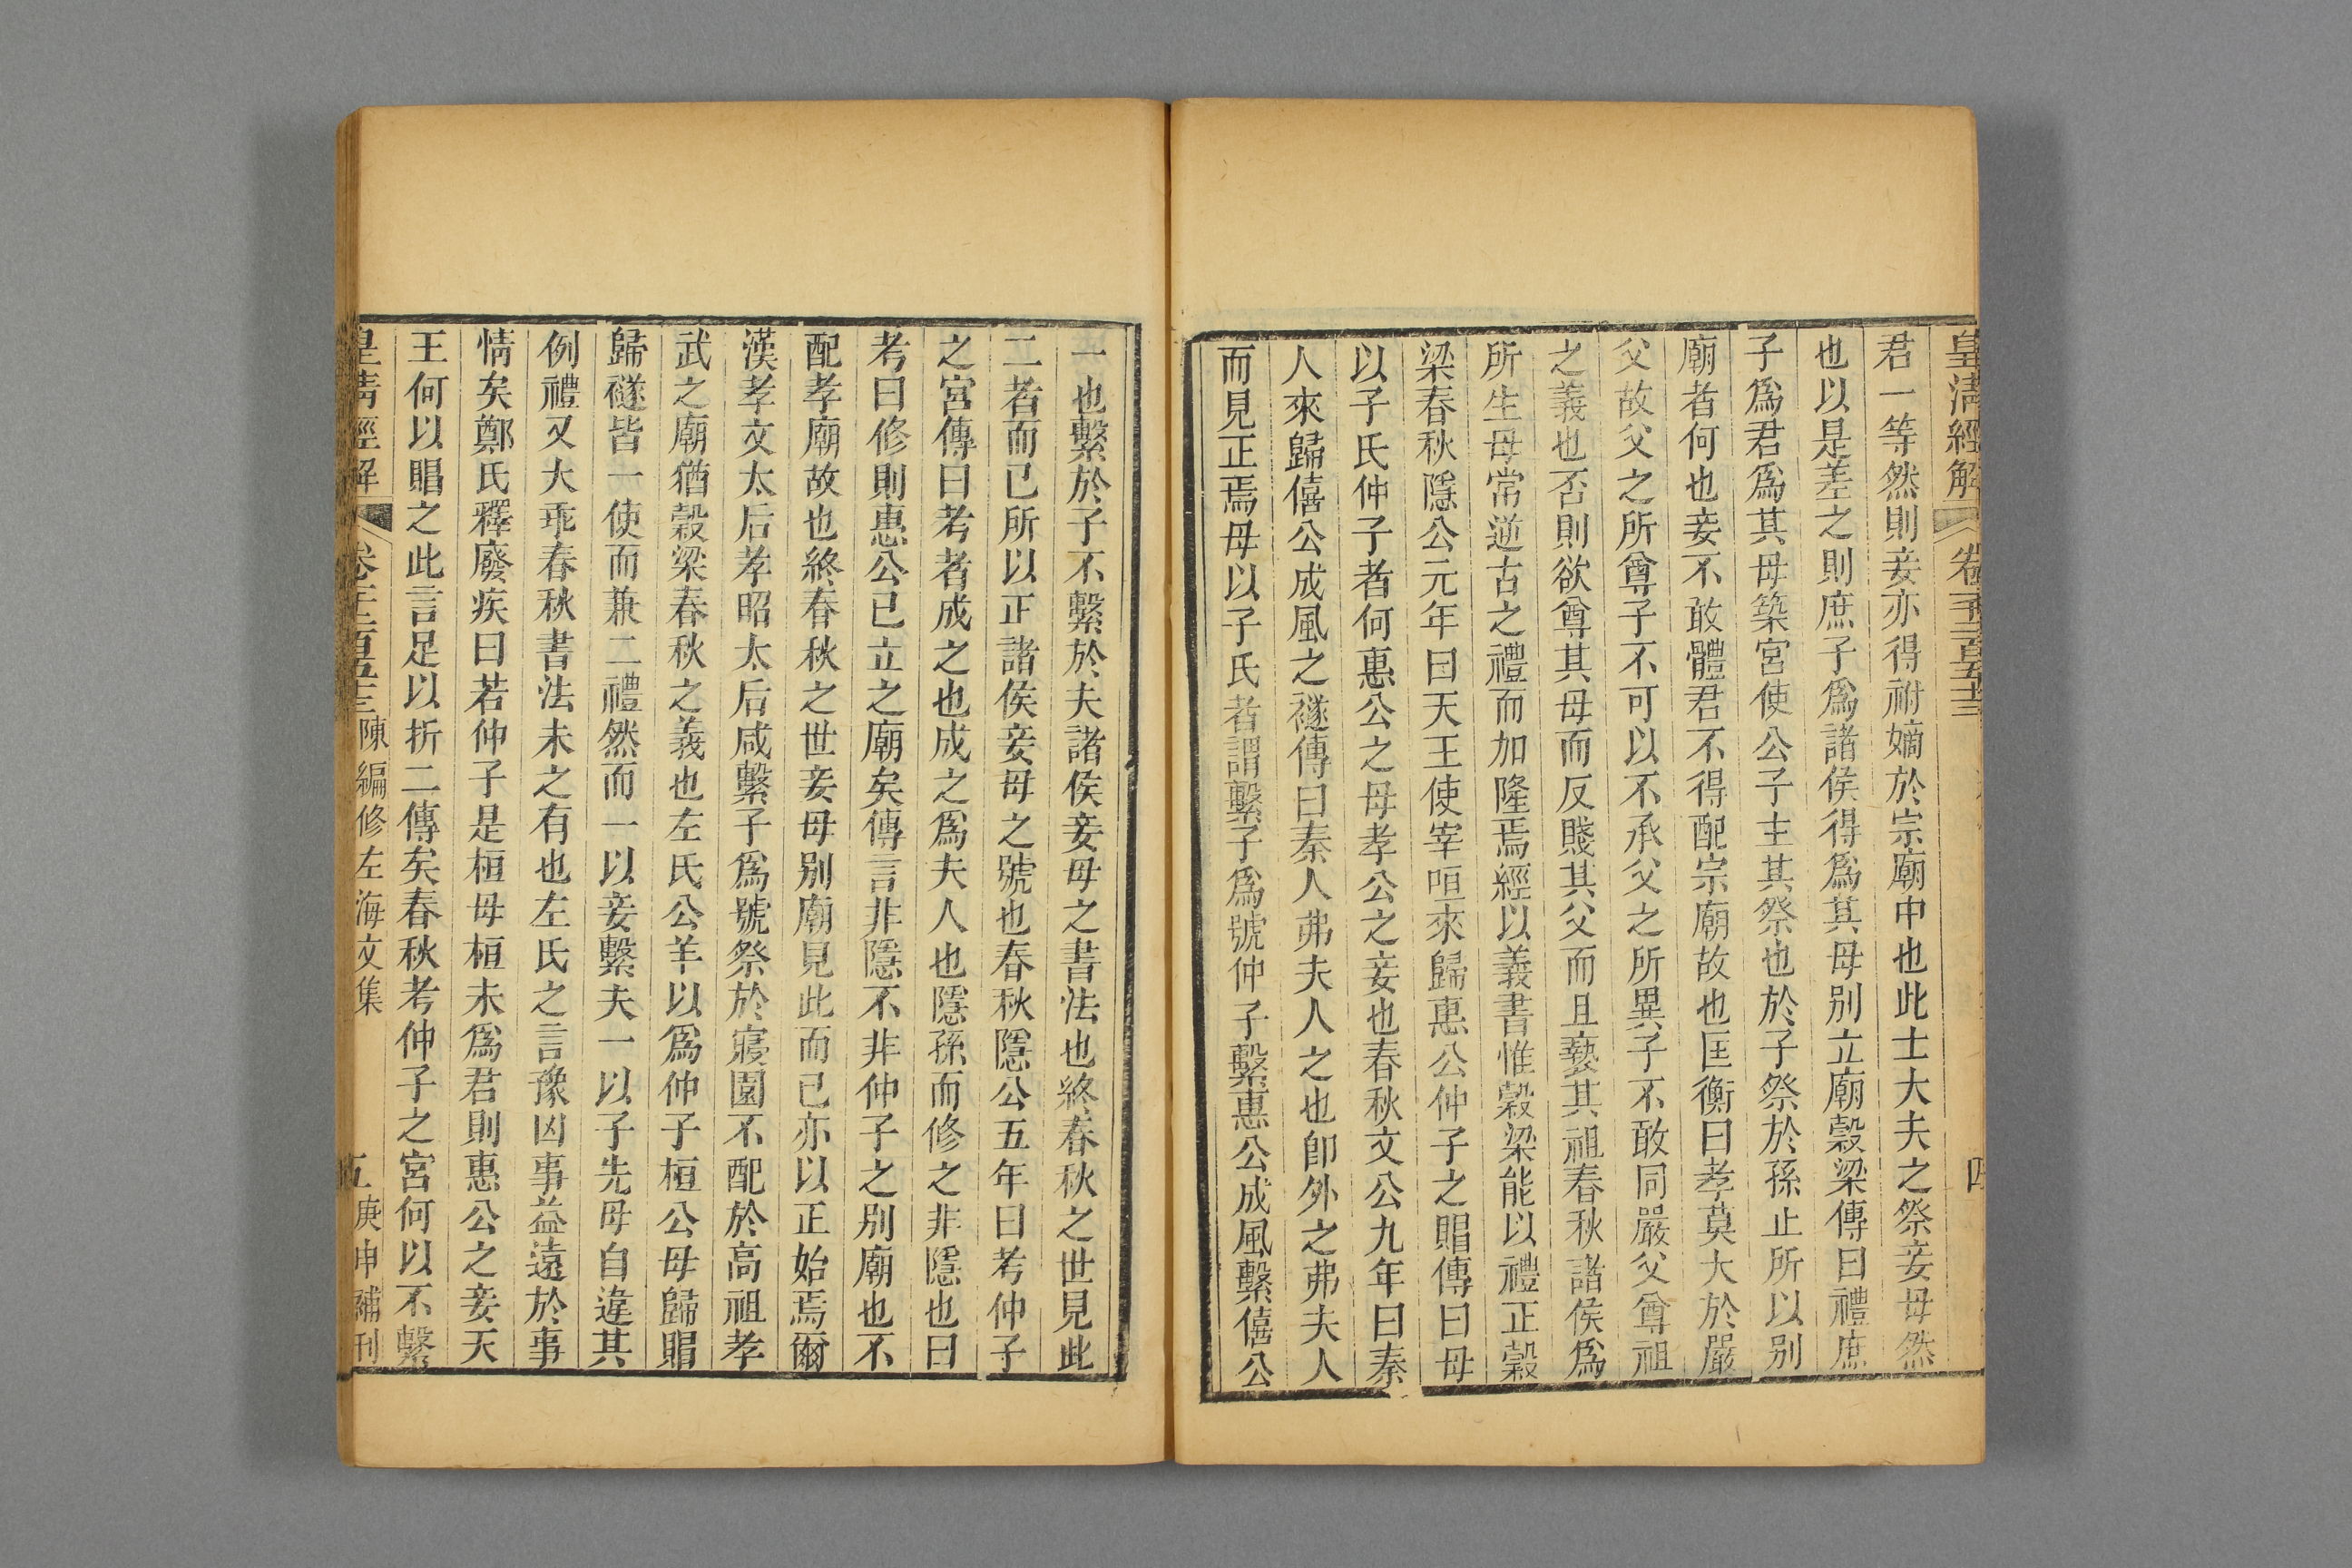 皇淸經解 卷一千二百五十三 四
君一等然則妾亦得祔嫡於宗廟中也此士大夫之祭妾母然
也以是差之則庶子爲諸侯得爲其母別立廟穀梁傳曰禮庶
子爲君爲其母築宮使公子主其祭也於子祭於孫止所以別
廟者何也妾不敢體君不得配宗廟故也匡衡曰孝莫大於嚴
父故父之所尊子不可以不承父之所異子不敢同嚴父尊祖
之義也否則欲尊其母而反賤其父而且褻其祖春秋諸侯爲
所生母常逆古之禮而加隆焉經以義書惟穀梁能以禮正穀
梁春秋隱公元年曰天王使宰咺來歸惠公仲子之賵傳曰母
以子氏仲子者何惠公之母孝公之妾也春秋文公九年曰秦
人來歸僖公成風之襚傳曰秦人弗夫人之也卽外之弗夫人
而見正焉母以子氏者謂繫子爲號仲子繫惠公成風繫僖公
一也繫於子不繫於夫諸侯妾母之書法也終春秋之世見此
二者而已所以正諸侯妾母之號也春秋隱公五年曰考仲子
之宮傳曰考者成之也成之爲夫人也隱孫而修之非隱也曰
考曰修則惠公已立之廟矣傳言非隱不非仲子之別廟也不
配孝廟故也終春秋之世妾母別廟見此而已亦以正始焉爾
漢孝文太后孝昭太后咸繫子爲號祭於寢園不配於高祖孝
武之廟猶穀梁春秋之義也左氏公羊以爲仲子桓公母歸賵
歸襚皆一使而兼二禮然而一以妾繫夫一以子先母自違其
例禮又大乖春秋書法未之有也左氏之言豫凶事益遠於事
情矣鄭氏釋廢疾曰若仲子是桓母桓未爲君則惠公之妾天
王何以賵之此言足以折二傳矣春秋考仲子之宮何以不繫
皇淸經解 卷一千二百五十三 陳編修左海文集 五 庚申補刊